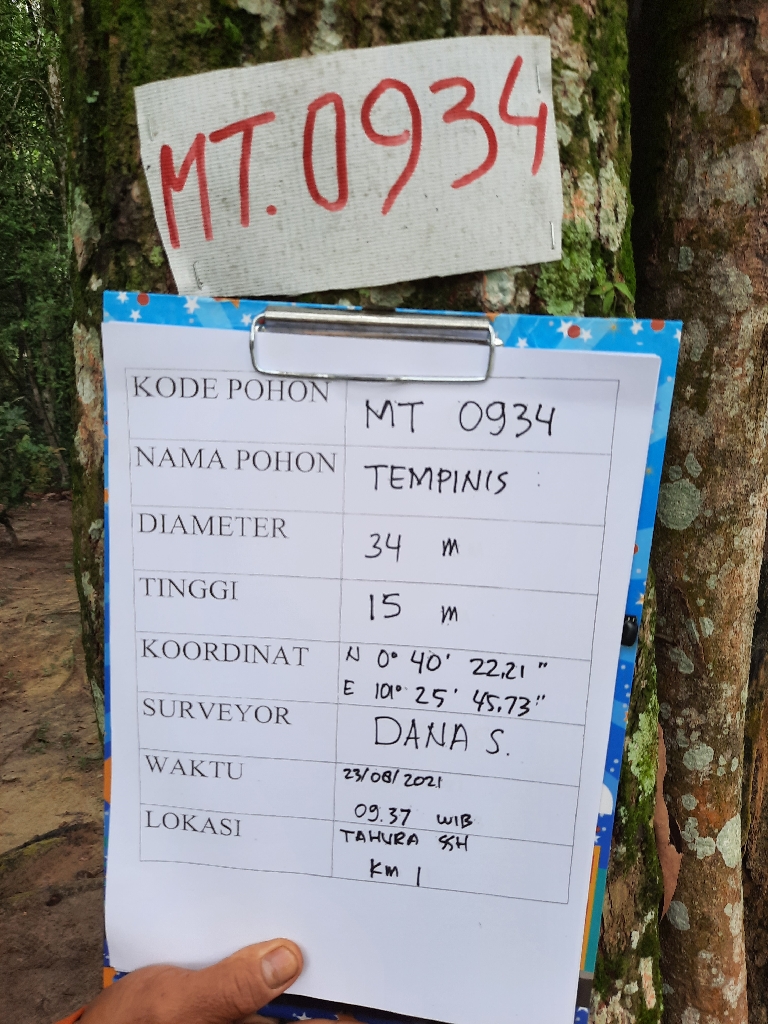 MT.0934
KODE POHON MT 0934
NAMA POHON TEMPINIS :
DIAMETER 34 m
TINGGI 15 m
KOORDINAT N 0° 40' 22,21"
E 101° 25' 45,73"
SURVEYOR DANA S.
WAKTU 23/08/2021
09.37 WIB
LOKASI TAHURA SSH
KM 1